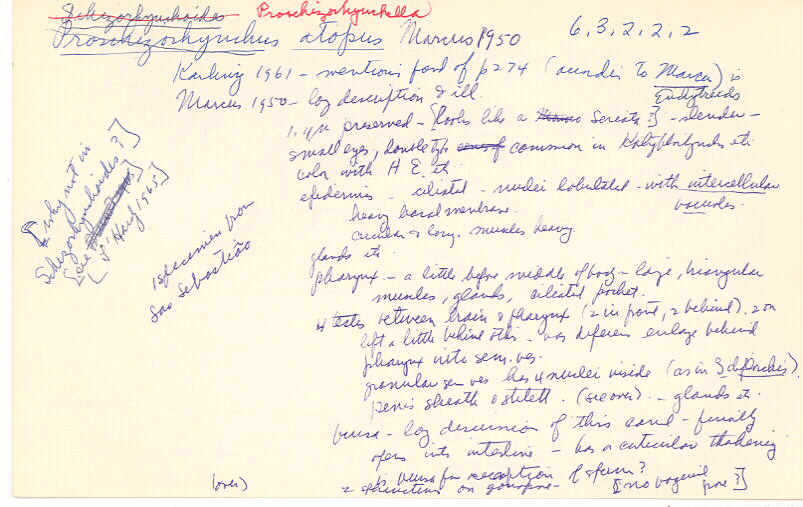 Schizorhynchoides Proschizorhynchella
Proschizorhynchus atopus Marcus 1950 6, 3, 2, 2, 2
Karling 1961 – mentions ford of p274 (according to Marcus) is
Marcus 1950 – long description & ill.
1.4 m preserved – [looks like a seriate?] – slender –
small eyes, double type common in Kalyptorhynchs etc.
color with H E. etc
epidermis – ciliated – nuclei lobulated – with intercellular
heavy basal membrane. vacuoles.
circular & long. muscles heavy.
glands etc
pharynx – a little before middle of body – large, triangular
muscles, glands, ciliated pocket.
4 testes between brain & pharynx (2 in front, 2 behind). 2 on
left a little behind others – vas deferens enlarge behind
pharynx into sem. ves.
granular sem ves has 4 nuclei inside (as in
penis sheath & stilett. (see over). – glands etc.
bursa – long discussion of this canal – finally
opens into intestine – has a cuticular thickening
is bursa for reception of sperm?
2 sphincters on gonopore – [no vaginal
(over) pore?]
[why not in
Schizorhynchoides?]
[see
1965]
1 specimen from
Sao Sebastião